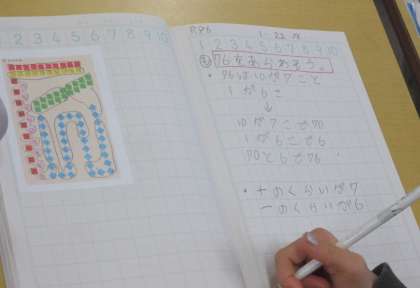 1 2 3 4 5 6 7 8 9 10
P.86
1 2 3 4 5 6 7 8 9 10
76をあらわそう。
・76は10が7こと
1が6こ
↓
10が7こで70
1が6こで6
70と6で76
・十のくらいが7
一のくらいが6